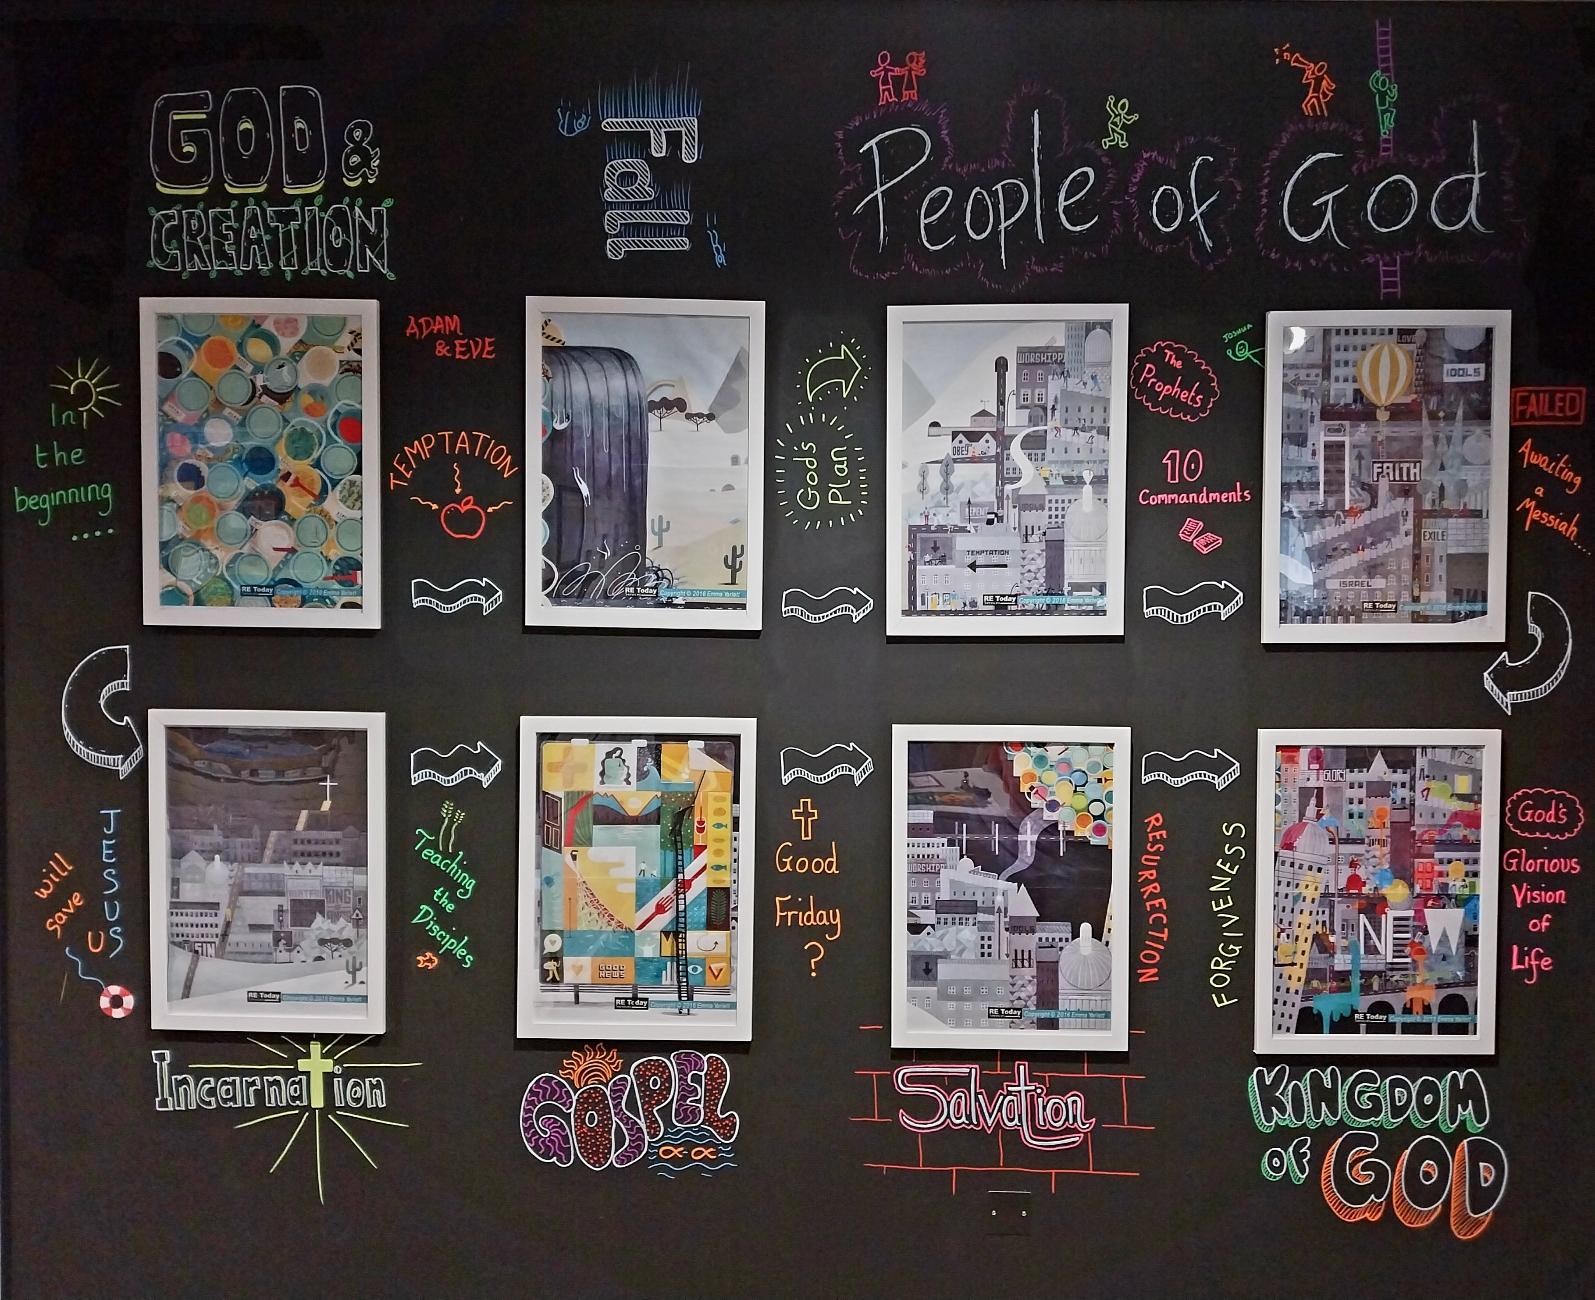 GOD &
CREATION
Fall
People of God
In
the
beginning
....
ADAM
& EVE
TEMPTATION
God's
Plan
The
Prophets
10
Commandments
JOSHUA
FAILED
Awaiting
a
Messiah...
RE Today Copyright © 2016 Emma Yarlett
RE Today Copyright © 2016 Emma Yarlett
WORSHIP
OBEY
REPENT
TEMPTATION
RE Today Copyright © 2016 Emma Yarlett
LOVE
IDOLS
FAITH
EXILE
ISRAEL
RE Today Copyright © 2016 Emma Yarlett
JESUS
will
save
US
KING
SIN
RE Today Copyright © 2016 Emma Yarlett
Incarnation
Teaching
the
Disciples
GOOD
NEWS
RE Today Copyright © 2016 Emma Yarlett
GOSPEL
Good
Friday
?
WORSHIP
IDOLS
RE Today Copyright © 2016 Emma Yarlett
Salvation
RESURRECTION
FORGIVENESS
GLORY
NEW
RE Today Copyright © 2016 Emma Yarlett
KINGDOM
OF GOD
God's
Glorious
Vision
of
Life